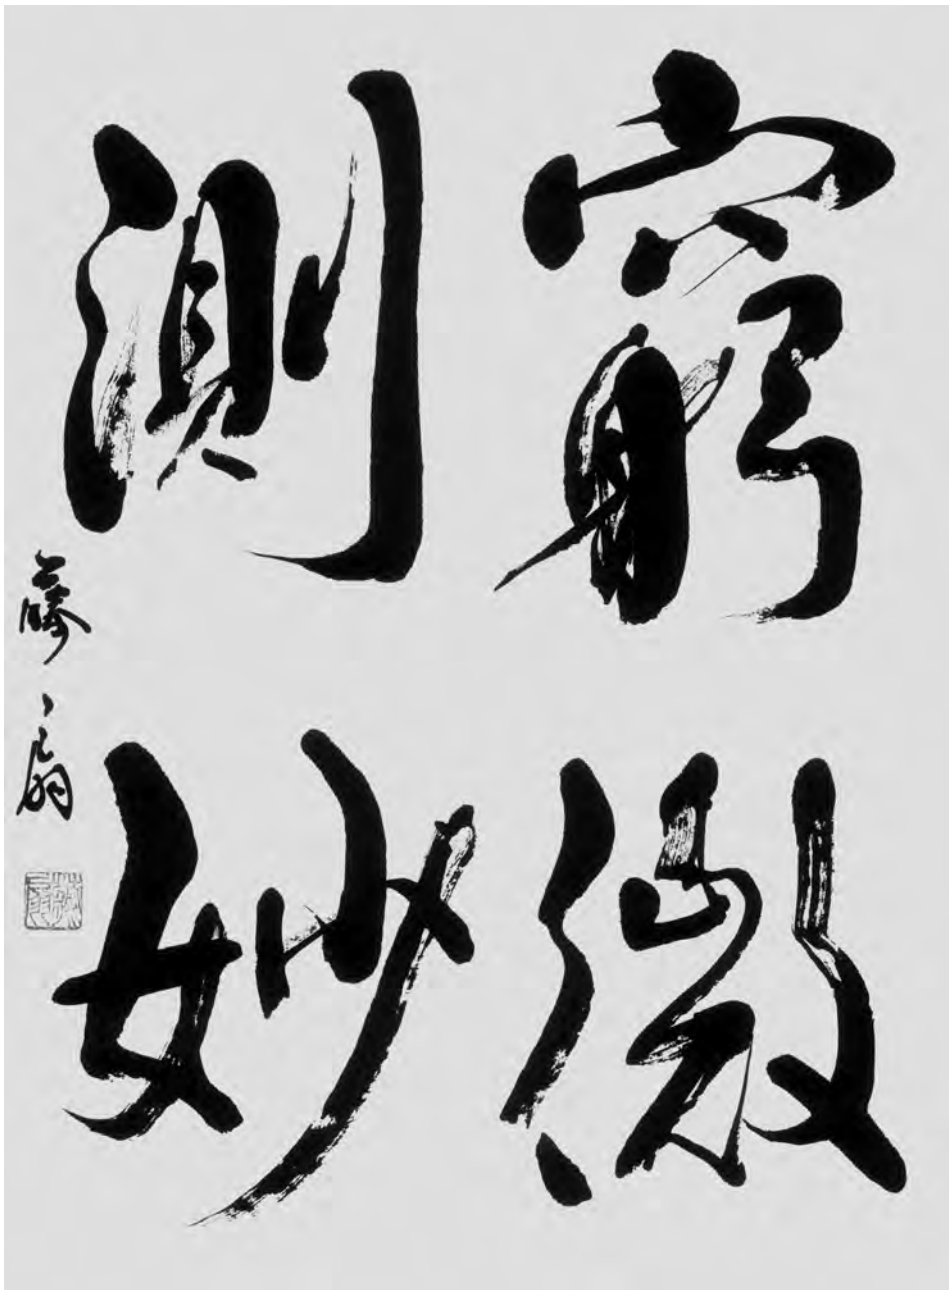 窮微
測妙
藤扇